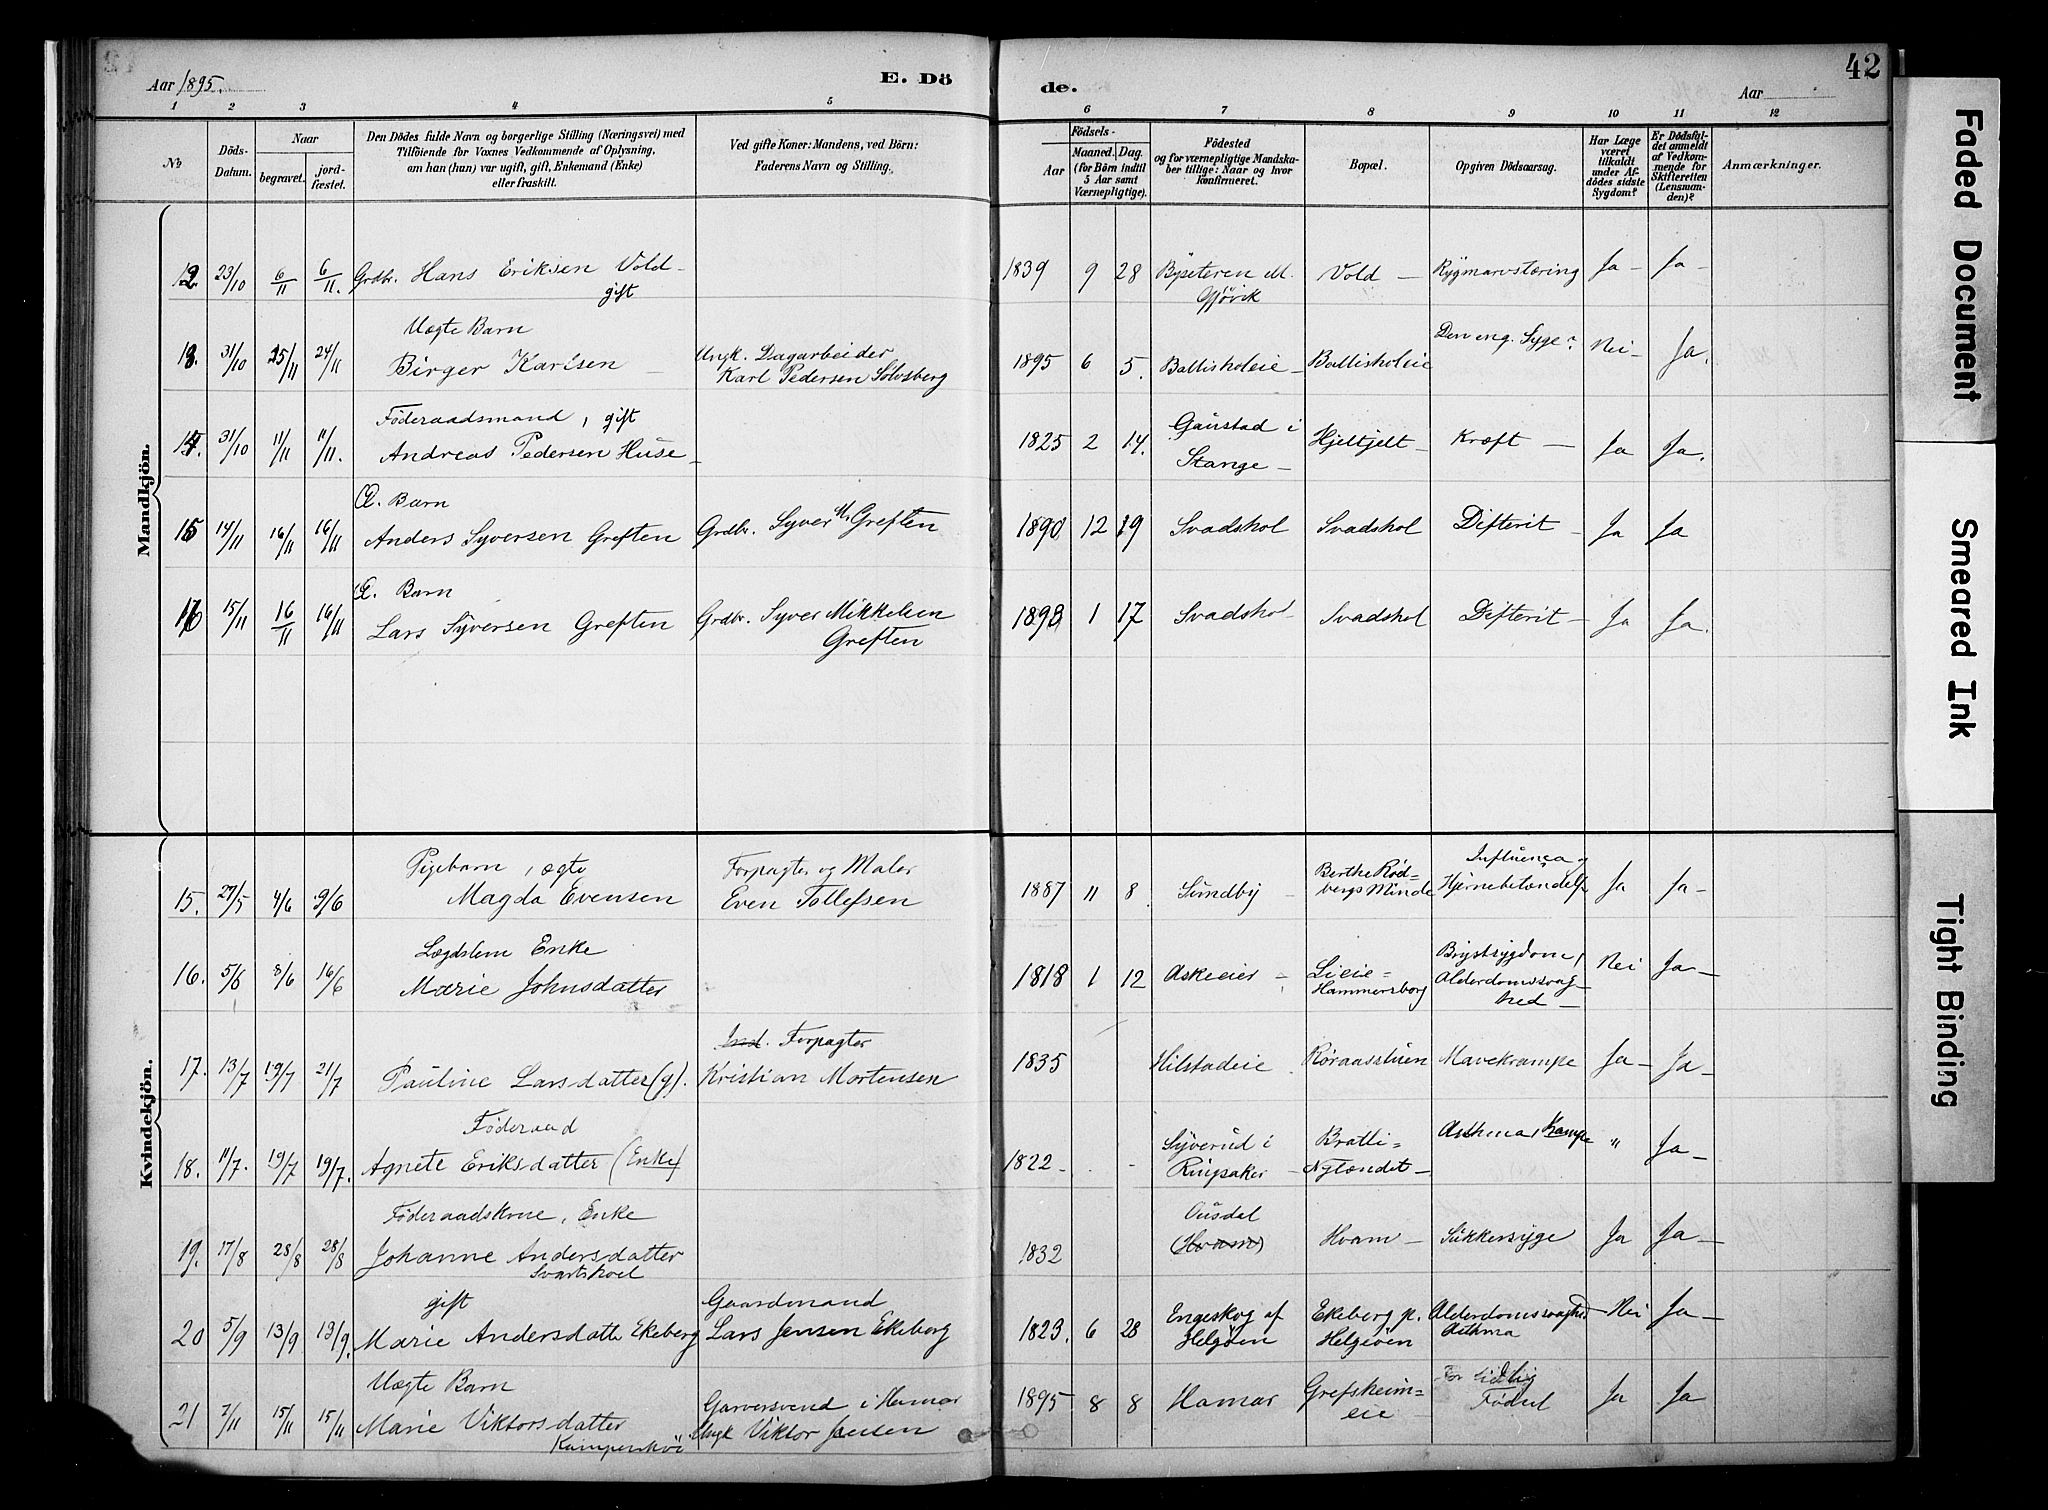 Aar 1895.
E. Dö
de.
Aar
42
1 2 3 4 5 6 7 8 9 10 11 12
No
Döds-Datum.
Naar
begravet.
jordfæstet.
Den Dödes fulde Navn og borgerlige Stilling (Næringsvei) med
Tilföiende for Voxnes Vedkommende af Oplysning,
om han (hun) var ugift, gift, Enkemand (Enke)
eller fraskilt.
Ved gifte Koner: Mandens, ved Börn:
Faderens Navn og Stilling.
Födsels-
Aar
Maaned.
Dag.
(for Börn indtil
5 Aar samt
Værnepligtige).
Födested
og for værnepligtige Mandska-
ber tillige: Naar og hvor
konfirmeret.
Bopæl.
Opgiven Dödsaarsag.
Har Læge
været
tilkaldt
under Af-
dödes sidste
Sygdom?
Er Dödsful-
det anmeldt
af Vedkom-
mende for
Skifteretten
(Lensman-
den)?
Anmærkninger.
Mandkjön.
12. 23/10 6/11 6/11. Grdbr. Hans Eriksen Vold - gift
1839 9 28 Byseteren M. Gjövik Vold - Rygmarvstæring Ja - Ja -
13. 31/10 25/11 24/11 Uægte Barn
Birger Karlsen
Ungk. Dagarbeider
Karl Pedersen Solvsberg
1895 6 5. Ballisholeie - Ballisholeie Den eng. Syge? Nei - Ja.
14. 31/10 11/11 11/11. Föderaadsmand, gift
Andreas Pedersen Huse -
1825 2 14. Gaustad i Stange - Hjeltjelt - Kræft - Ja Ja.
15 14/11 16/11 16/11 Æ. Barn
Anders Syversen Greften
Grdbr. Syver M. Greften
1890 12 19 Svadshol Svadshol Difterit - Ja Ja
16 15/11 16/11 16/11 Æ. Barn
Lars Syversen Greften
Grdbr. Syver Mikkelsen
Greften
1893 1 17 Svadshol Svadshol Difterit - Ja Ja.
Kvindekjön.
15. 27/5 4/6 9/6 Pigebarn, ægte
Magda Evensen
Forpagter og Maler
Even Tollefsen
1887 11 8 Sundby - Berthe Rödbergs Minde Influensa og Hjernebetændelse Ja Ja -
16. 5/6 8/6 16/6 Lægdslem Enke
Marie Johnsdatter
1818 1 12 Askeeier - Lieie = Hammersborg Brystsygdom, Alderdomssvaghed - Nei Ja -
17. 13/7 19/7 21/7 Pauline Larsdatter (g).
Ind. Forpagter
Kristian Mortensen
1835 Hilstadeie Röraasstuen Mavekrampe Ja - Ja -
18. 11/7. 19/7 19/7. Föderaad
Agnete Eriksdatter (Enke)
1822 . - Syverud i Ringsaker - Bratli = Nylændet - Asthma Krampe " Ja -
19. 17/8 28/8 28/8 Föderaadskone, Enke
Johanne Andersdatter
Svartshoel
1832 Ousdal (Hvam) Hvam - Sukkersyge Ja Ja -
20 5/9 13/9 13/9. gift
Marie Andersdatt. Ekeberg
Gaardmand
Lars Jensen Ekeberg
1823. 6 28 Engeskog af Helgöen Ekeberg p. Helgeöen Alderdomssvaghed Asthma Nei Ja -
21 7/11 15/11 15/11 Uægte Barn
Marie Viktorsdatter
Garversvend i Hamar
Ungk Viktor Jensen
1895 8 8 Hamar Grefsheim= eie For tidlig Födsel Ja Ja
Faded Document
Smeared Ink
Tight Binding